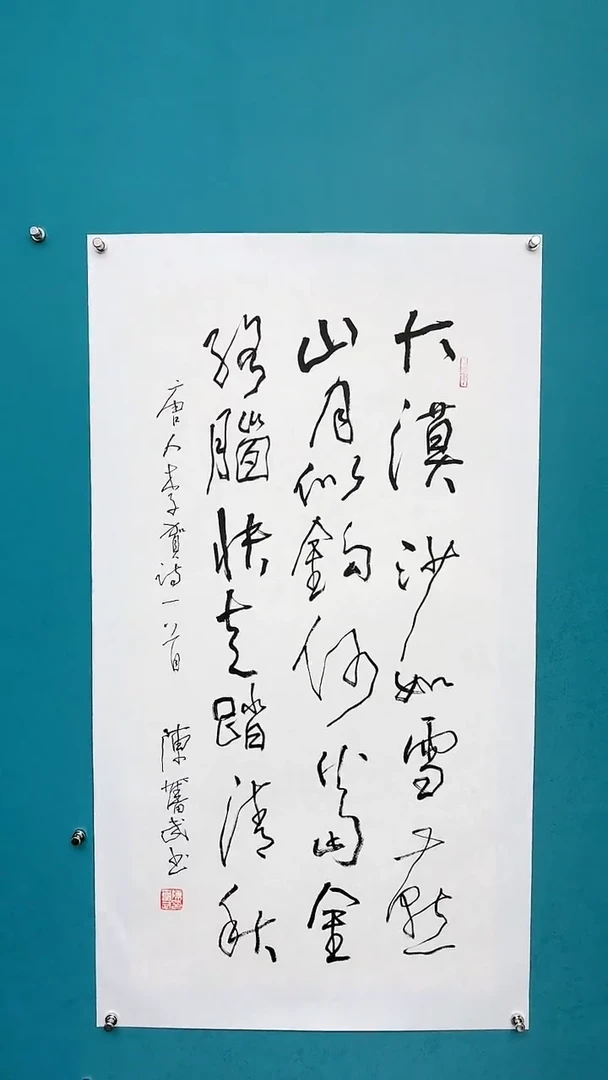 大漠沙如雪燕
山月似鈎何當金
絡腦快走踏清秋
唐人李賀詩一首 陳奮武书